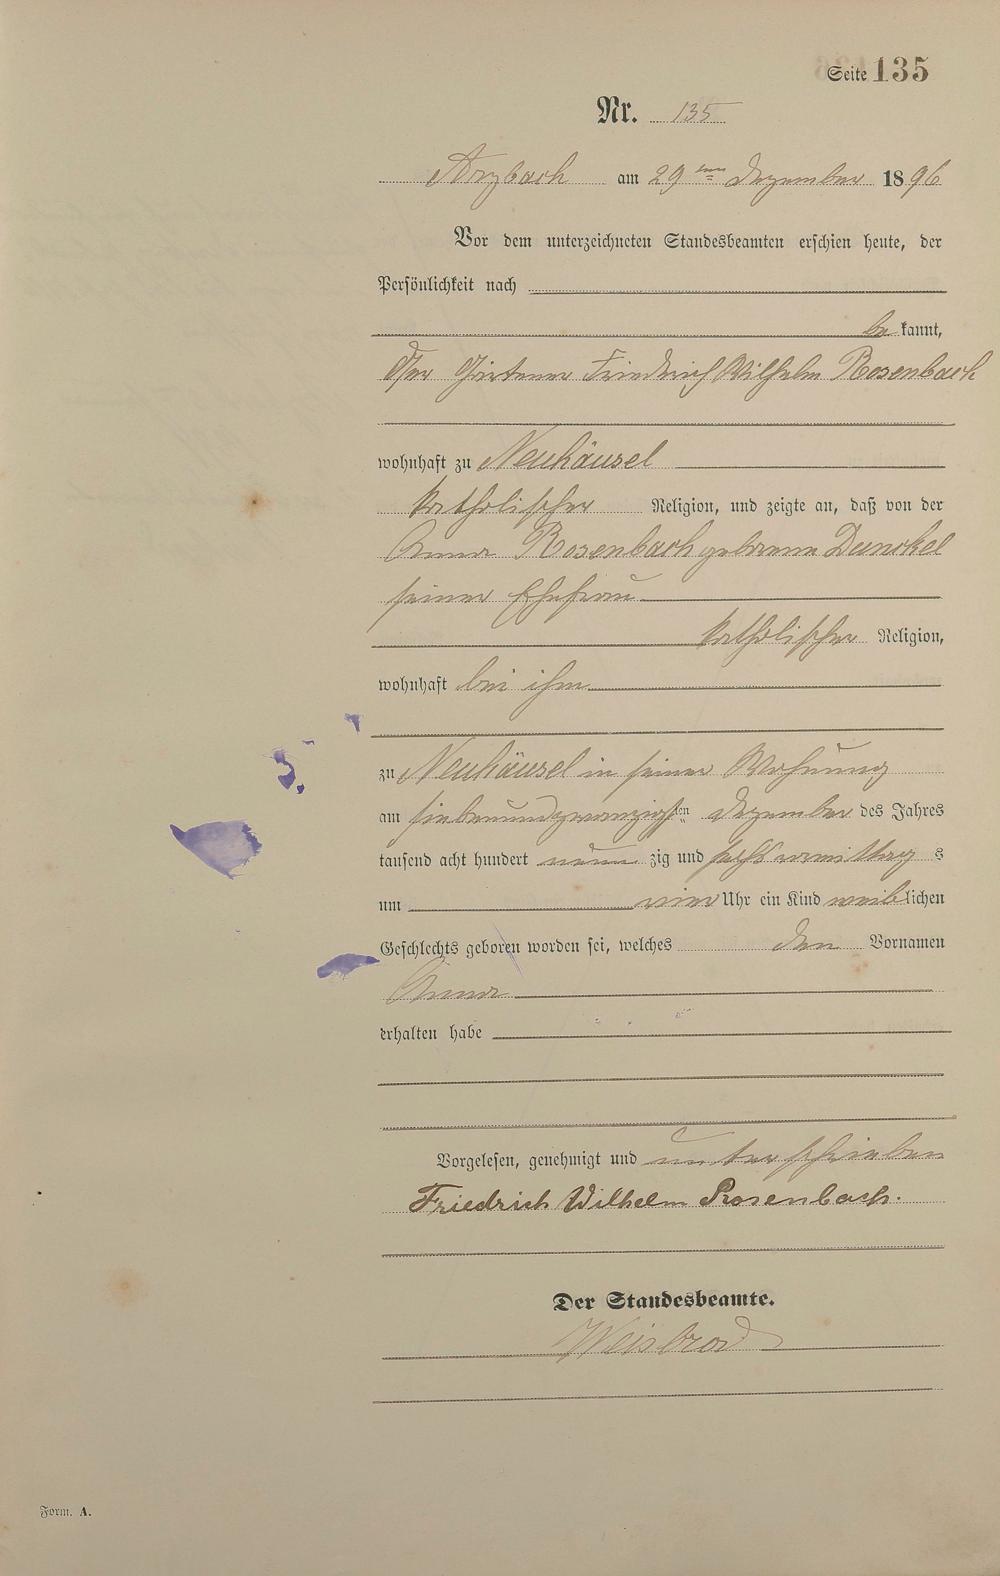 Seite 135
Nr. 135
Arzbach am 29ten Dezember 1896
Vor dem unterzeichneten Standesbeamten erschien heute, der
Persönlichkeit nach
be kannt,
der Gärtner Friedrich Wilhelm Rosenbach
wohnhaft zu Neuhäusel
katholischer Religion, und zeigte an, daß von der
Anna Rosenbach geborene Dunckel
seiner Ehefrau
katholischer Religion,
wohnhaft bei ihm
zu Neuhäusel in seiner Wohnung
am siebenundzwanzigsten Dezember des Jahres
tausend acht hundert neun zig und sechs vormittag s
um vier Uhr ein Kind weiblichen
Geschlechts geboren worden sei, welches den Vornamen
Anna
erhalten habe
Vorgelesen, genehmigt und unterschrieben
Friedrich Wilhelm Rosenbach.
Der Standesbeamte.
Weisbrod
Form. A.